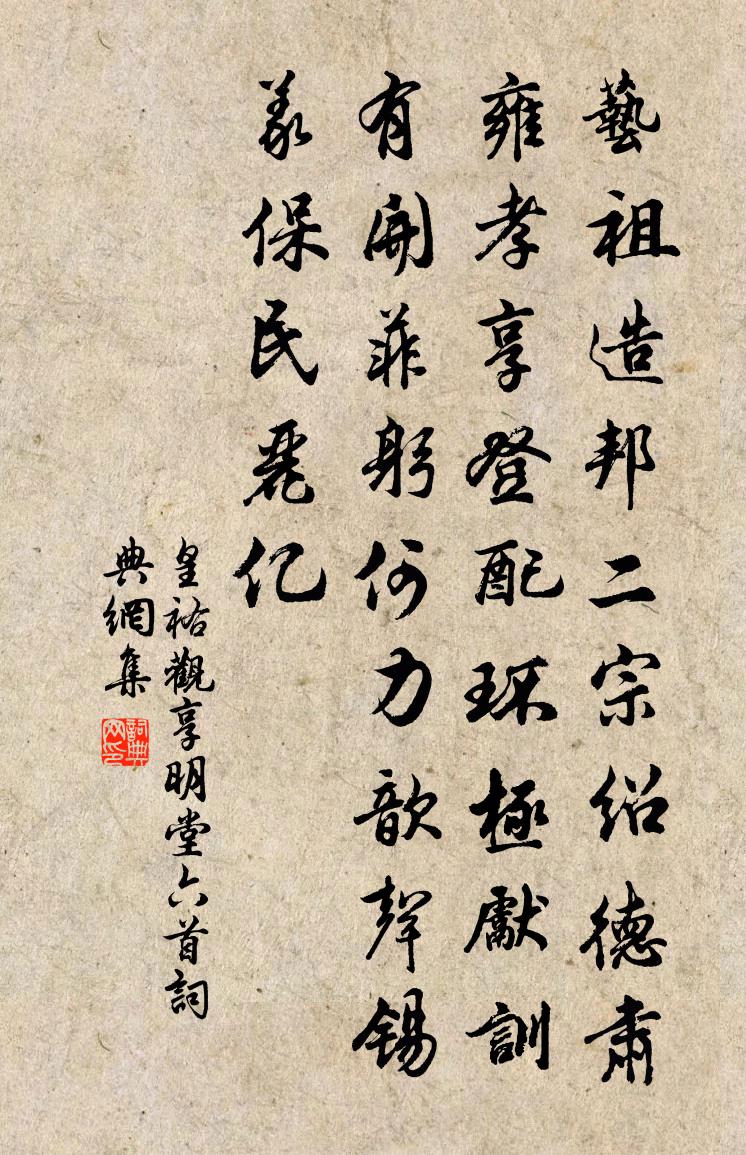 藝祖造邦二宗紹德肅
雍孝享登配环極獻訓
有開菲躬何力歆聲錫
羨保民麗亿
皇祐觀享明堂六首詞
典網集
詞典
网印